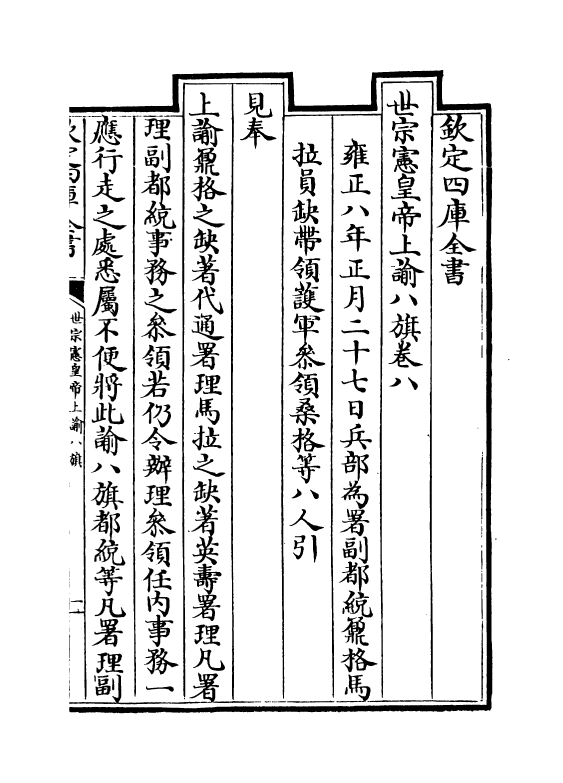 欽定四庫全書
世宗憲皇帝上諭八旗卷八
雍正八年正月二十七日兵部為署副都統鼐格馬
拉員缺帶領護軍叅領桑格等八人引
見奉
上諭鼐格之缺著代通署理馬拉之缺著英壽署理凡署
理副都統事務之叅領若仍令辦理叅領任內事務一
應行走之處悉屬不便將此諭八旗都統等凡署理副
欽定四庫全書
世宗憲皇帝上諭八旗
一